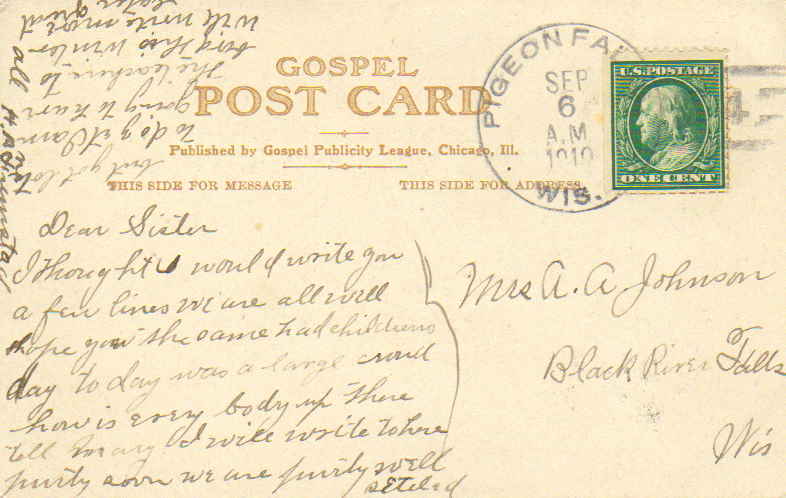 GOSPEL
POST CARD
Published by Gospel Publicity League, Chicago, Ill.
THIS SIDE FOR MESSAGE
THIS SIDE FOR ADDRESS
PIGEON FA
SEP
6
A.M.
1910
WIS.
U.S. POSTAGE
ONE CENT
Dear Sister
I thought I would write you
a few lines we are all well
hope you the same had childrens
day to day was a large croud
how is every body up there
tell mary I will write to here
purty soon we are purty well
seteled
but got lots
to do yet
going to have
the teacher to
bord this winter
will write more
later
all
Mrs A. A Johnson
Black River Falls
Wis